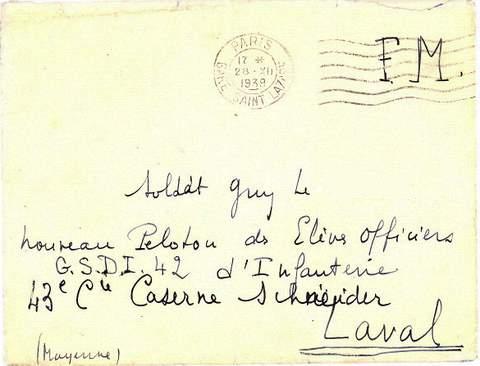 PARIS
17 *
28 - XII
1939
GARE SAINT LAZARE
F. M.
Soldat Guy Le
nouveau Peloton des Elèves officiers
G.S.D.I. 42 d'Infanterie
43e Cie Caserne Schneider
Laval
(Mayenne)